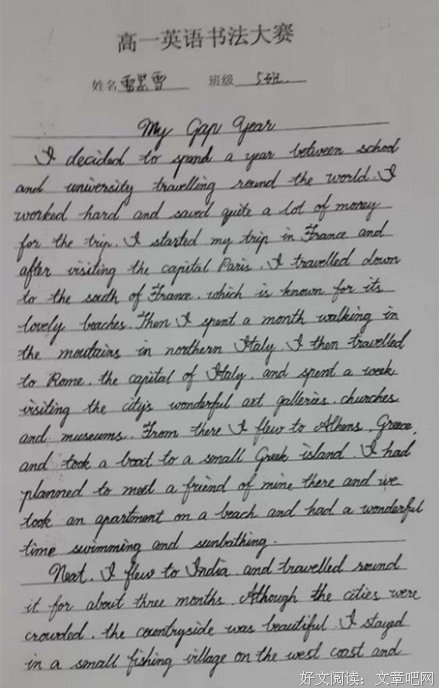 高一英语书法大赛
姓名 雪 班级 5班
My Gap Year
I decided to spend a year between school
and university travelling round the world. I
worked hard and saved quite a lot of money
for the trip. I started my trip in France and
after visiting the capital Paris, I travelled down
to the south of France, which is known for its
lovely beaches. Then I spent a month walking in
the moutains in northern Italy. I then travelled
to Rome, the capital of Italy, and spent a week
visiting the city's wonderful art galleries, churches
and museums. From there I flew to Athens, Greece,
and took a boat to a small Greek island. I had
planned to meet a friend of mine there and we
took an apartment on a beach and had a wonderful
time swimming and sunbathing.
Next, I flew to India and travelled round
it for about three months. Although the cities were
crowded, the countryside was beautiful. I stayed
in a small fishing village on the west coast and
好文阅读：文章吧网